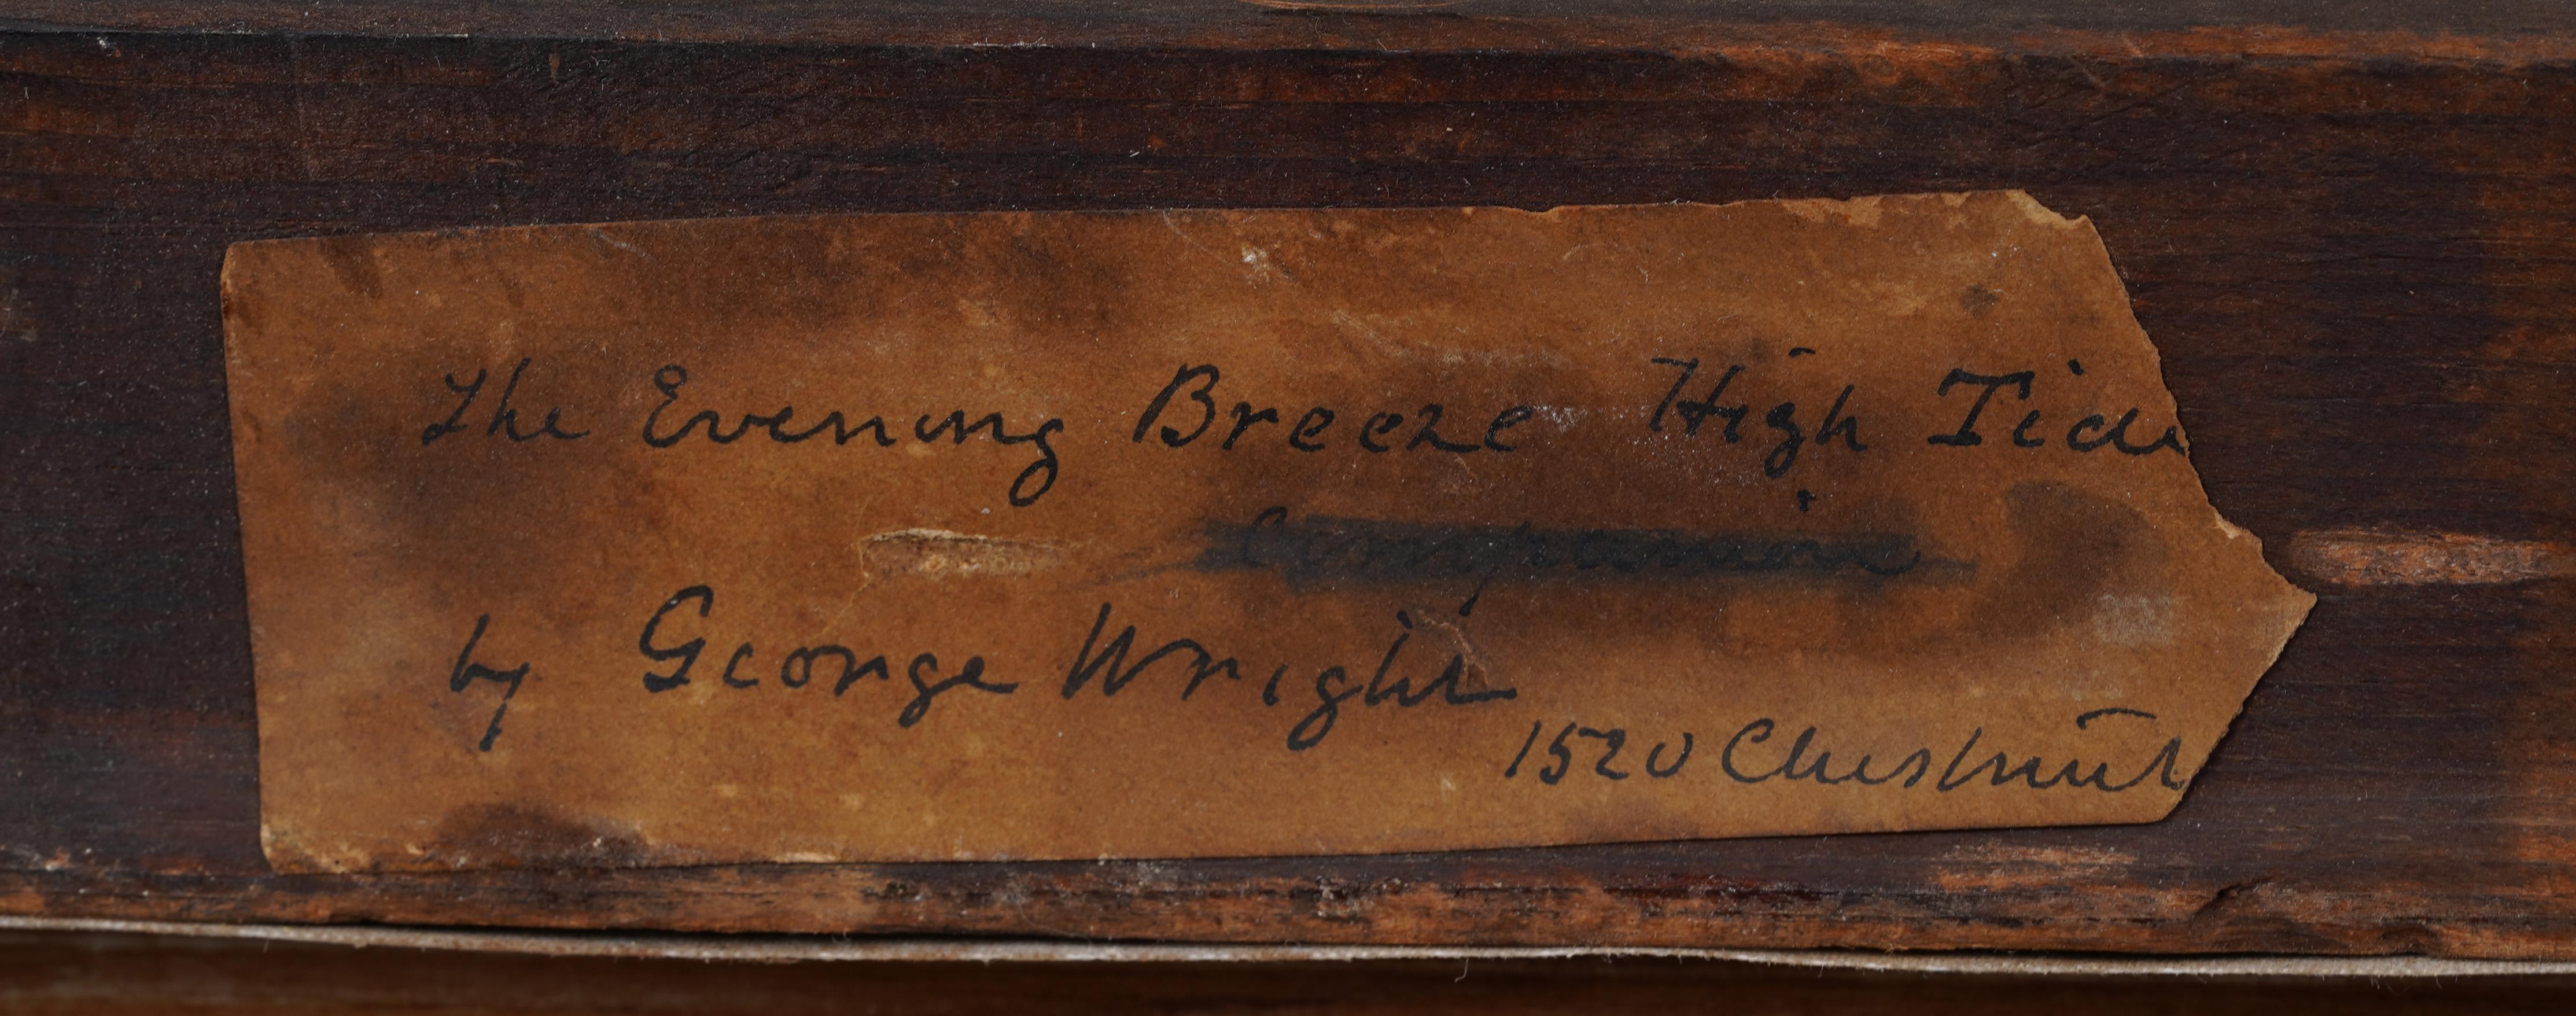 The Evening Breeze High Tide
Companion
by George Wright
1520 Chestnut